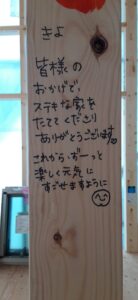 きよ
皆様の
おかげで、
ステキな家を
たててくださり
ありがとうございます♡
これから、ずーっと
楽しく元気に
すごせますように